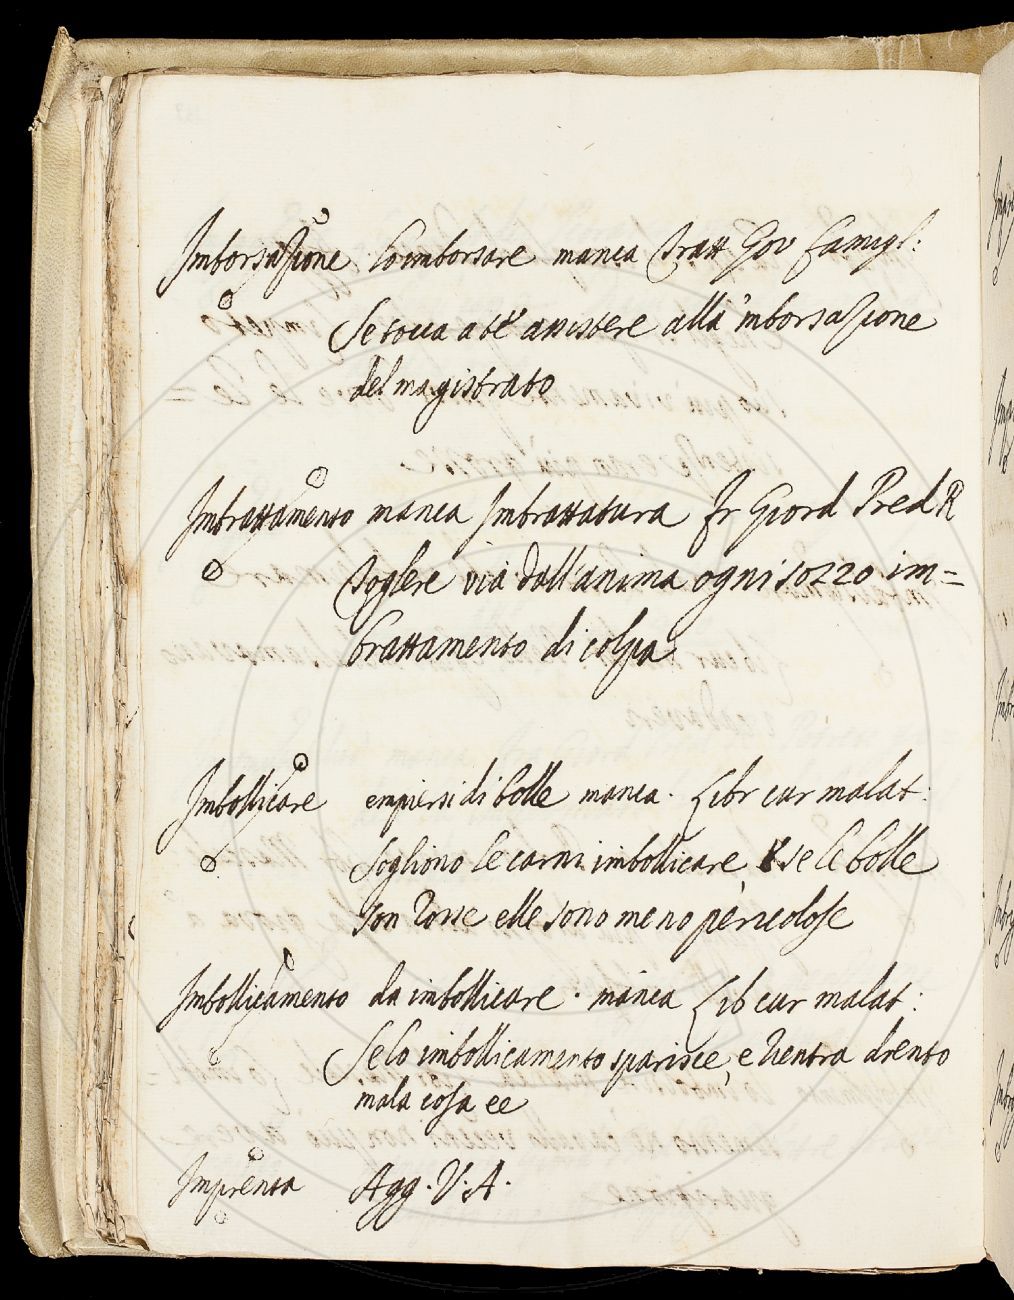 Imborsazione Lo imborsare manca Tratt Gov Famigl:
Se tocca a te assistere alla 'mborsazione
del magistrato
Imbrattamento manca Imbrattatura Fr Giord Pred R
Toglere via dall'anima ogni sozzo im=
brattamento di colpa
Imbollicare empiersi di bolle manca. Libr cur malat:
Sogliono le carni imbollicare, se le bolle
son rosse elle sono meno pericolose
Imbollicamento da imbollicare. manca Lib cur malat:
Se lo imbollicamento sparisce, e rientra drento
mala cosa ee
Imprenta Agg. V. A.